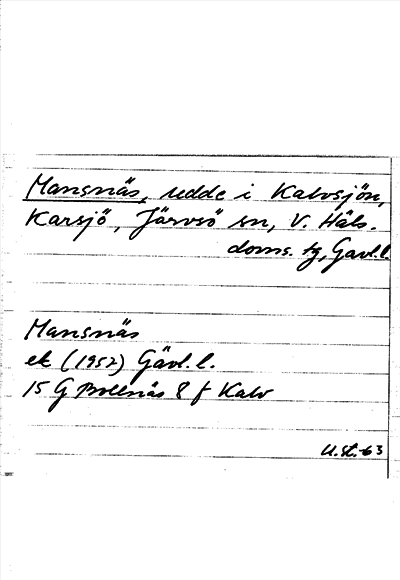 Mansnäs, udde i Kalvsjön,
Karsjö, Järvsö sn, V. Häls.
doms. tg, Gävl.l.
Mansnäs
ek (1952) Gävl.l.
15 G Bollnäs 8 f Kalv
U.St.-63